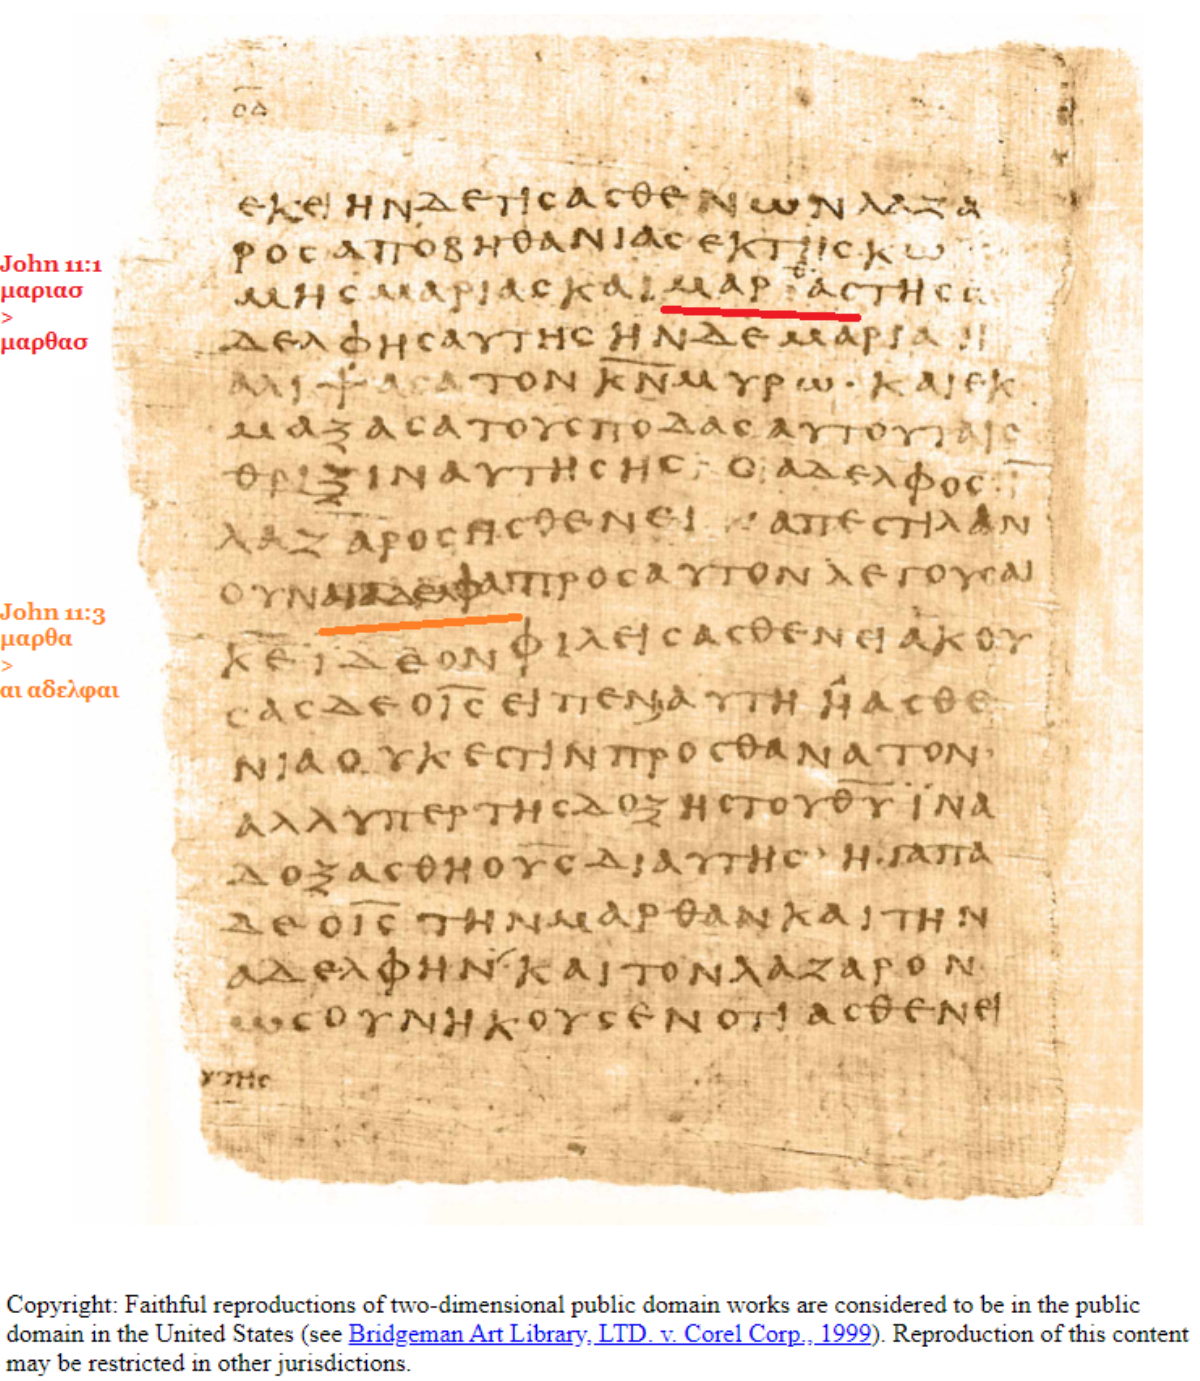 σδ
εκει ην δε τις ασθενων λαζα
ρος απο βηθανιας εκ της κω
John 11:1
μαριασ
>
μαρθασ
μης μαριας και μαρθας της α
δελφης αυτης ην δε μαρια η
αλιψασα τον κ̅ν̅ μυρω · και εκ
μαξασα τους ποδας αυτου ταις
θριξιν αυτης ης ο αδελφος
λαζαρος ησθενει απεστιλαν
John 11:3
μαρθα
>
αι αδελφαι
ουν προς αυτον λεγουσαι
κ̅ε̅ ϊδε ον φιλεις ασθενει ακου
σας δε ο ι̅ς̅ ειπεν αυτη η ασθε
νια ουκ εστιν προς θανατον·
αλλ υπερ της δοξης του θ̅υ̅ ϊνα
δοξασθη ο υ̅ς̅ δι αυτης · ηγαπα
δε ο ι̅ς̅ την μαρθαν και την
αδελφην και τον λαζαρον
ως ουν ηκουσεν οτι ασθενει
υτης
Copyright: Faithful reproductions of two-dimensional public domain works are considered to be in the public
domain in the United States (see Bridgeman Art Library, LTD. v. Corel Corp., 1999). Reproduction of this content
may be restricted in other jurisdictions.